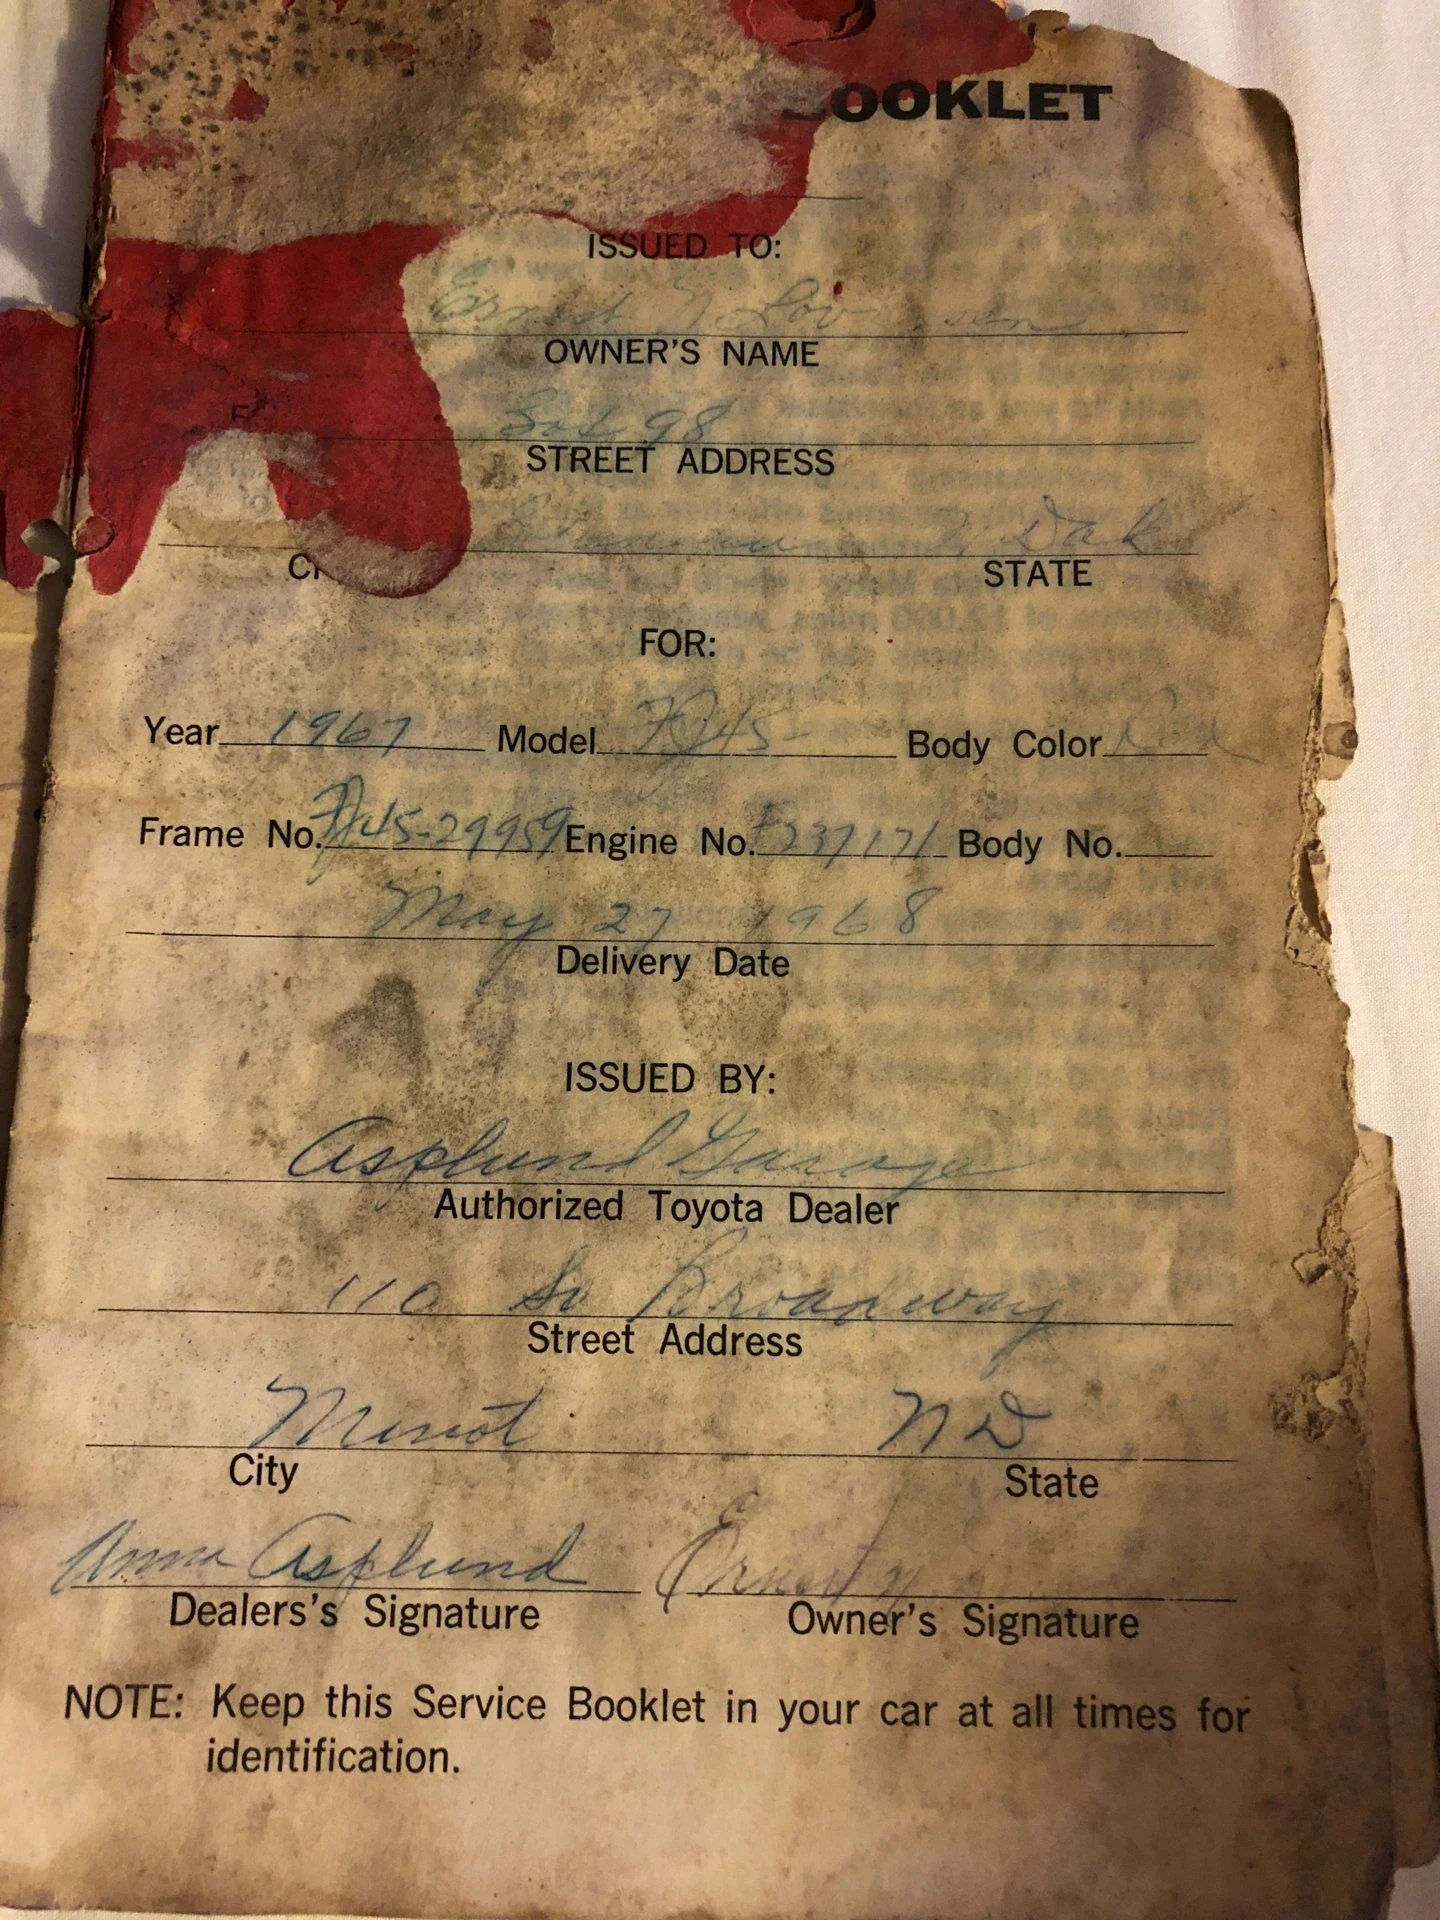 OOKLET
ISSUED TO:
Ernest N
OWNER'S NAME
98
STREET ADDRESS
Dak
STATE
FOR:
Year 1967 Model FJ45- Body Color Red
Frame No. FJ45-29959 Engine No. F237171 Body No.
May 27 1968
Delivery Date
ISSUED BY:
Asplund Garage
Authorized Toyota Dealer
110 So Broadway
Street Address
Minot ND
City State
Anna Asplund Ernest N
Dealers's Signature Owner's Signature
NOTE: Keep this Service Booklet in your car at all times for
identification.